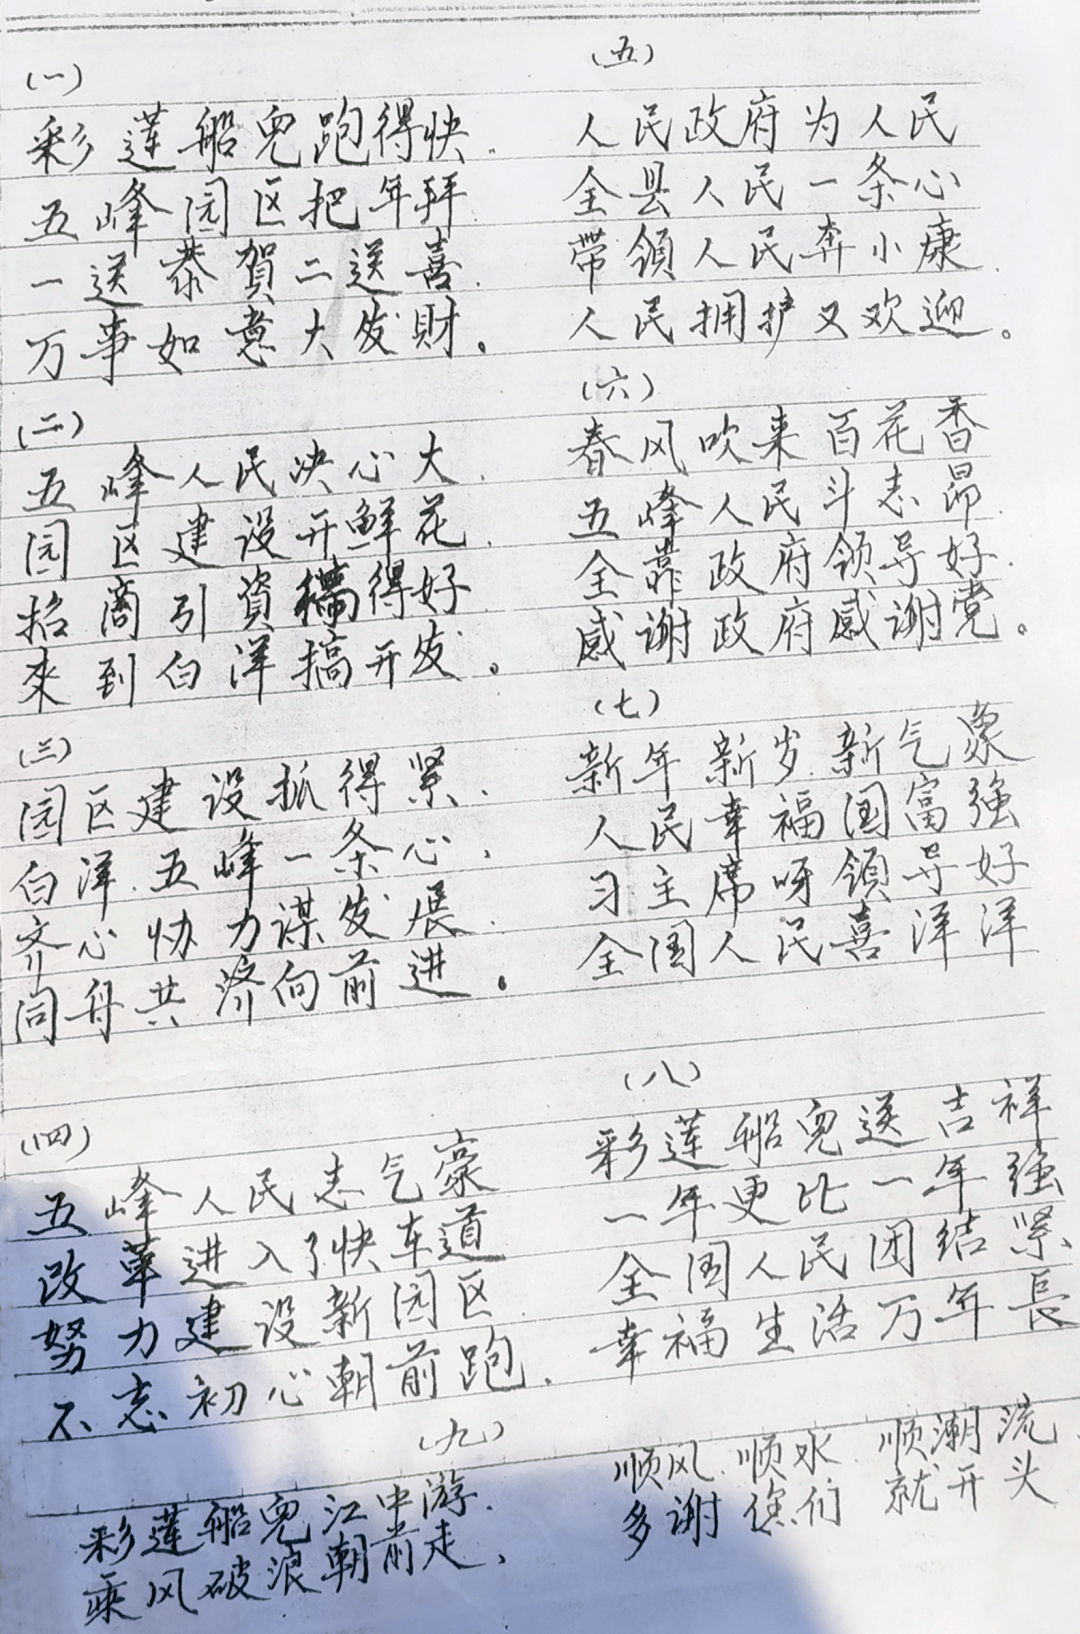 (一)
彩莲船儿跑得快.
五峰园区把年拜
一送恭賀二送喜.
万事如意大发財。
(二)
五峰人民决心大.
园区建设开鲜花.
招商引資搞得好.
來到白洋搞开发。
(三)
园区建设抓得紧.
白洋.五峰一条心、
齐心协力谋发展.
同舟共济向前进。
(四)
五峰人民志气豪
改革进入了快车道
努力建设新园区.
不忘初心朝前跑.
(五)
人民政府为人民
全县人民一条心
带領人民奔小康.
人民拥护又欢迎。
(六)
春风吹来百花香
五峰人民斗志昂.
全靠政府领导好.
感谢政府感谢党。
(七)
新年新岁新气象
人民幸福国富強
习主席呀領导好
全国人民喜洋洋
(八)
彩莲船儿送吉祥
一年更比一年强
全国人民团结紧
幸福生活万年長
(九)
彩莲船儿江中游.
乘风破浪朝前走、
顺风.顺水.顺潮流.
多谢您们就开头